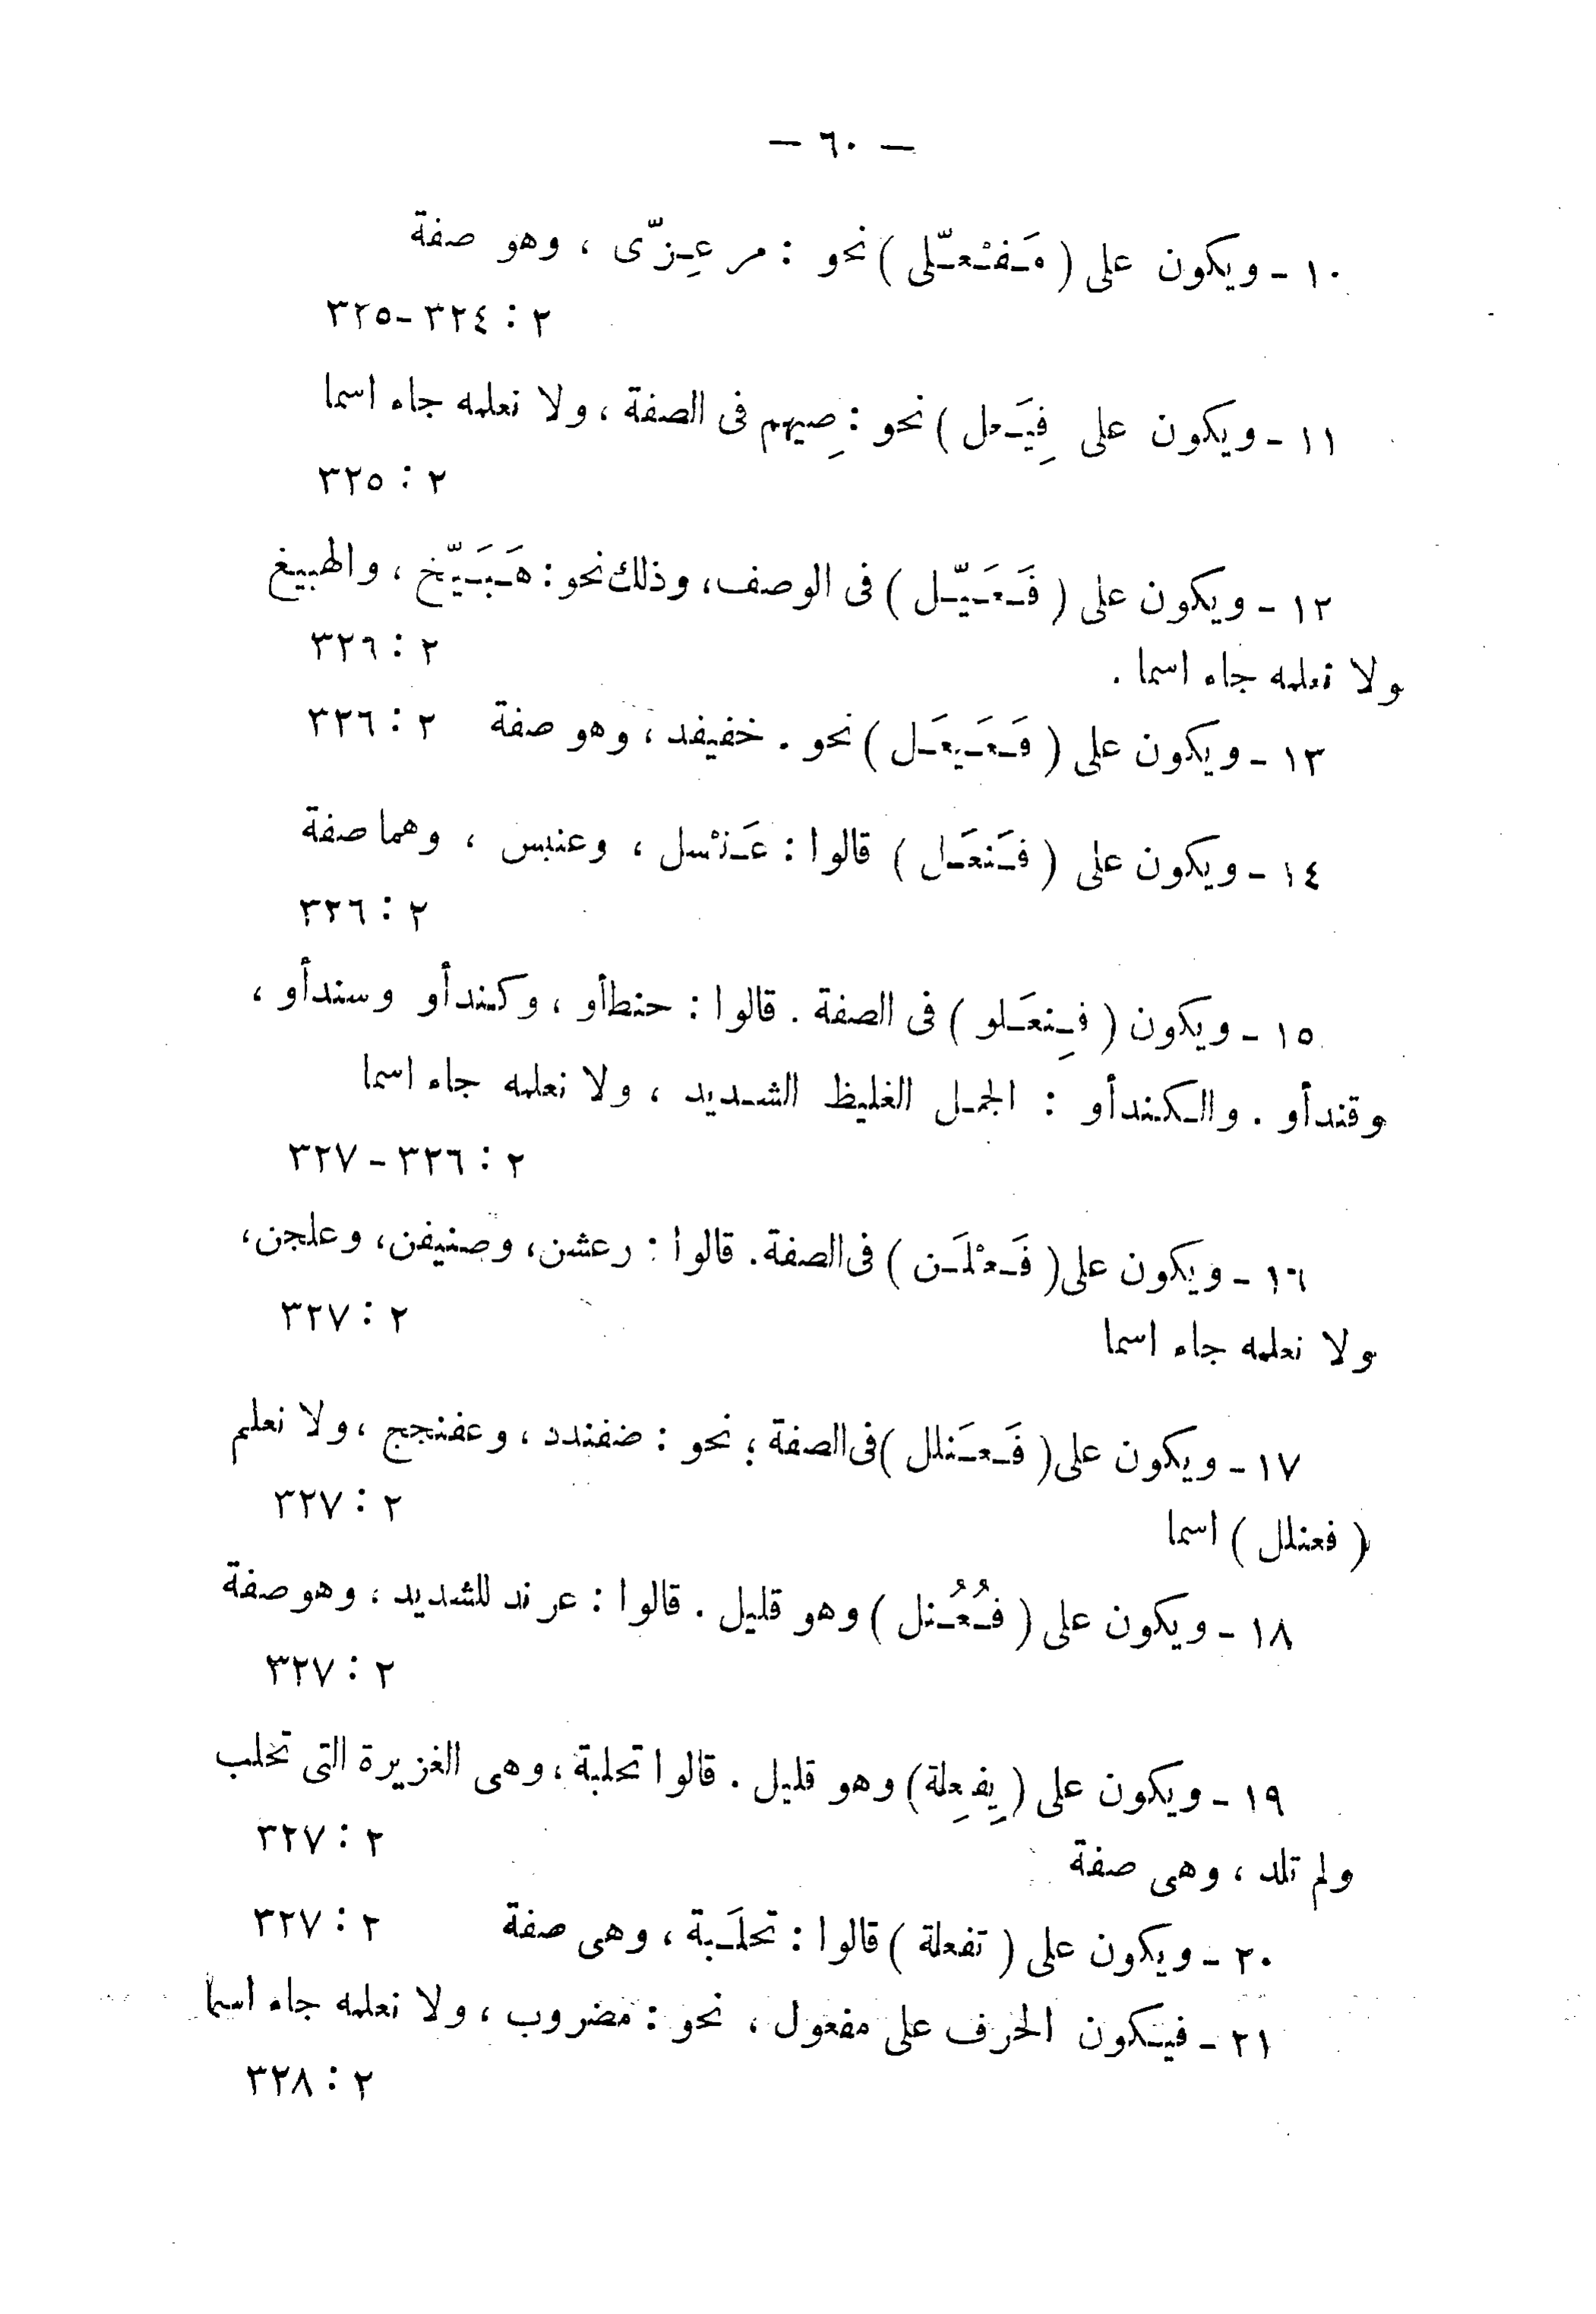 — ٦٠ —
١٠ - ويكون على ( مَفْعِلّى ) نحو : مرعِزّى ، وهو صفة
٢ : ٣٢٤-٣٢٥
١١ - ويكون على فِيَعل ) نحو : صِيهم فى الصفة ، ولا نعلمه جاء اسما
٢ : ٣٢٥
١٢ - ويكون على ( فَعَيّل ) فى الوصف، وذلك نحو : هَبَيّخ ، والهبيغ
ولا نعلمه جاء اسما . ٢ : ٣٢٦
١٣ - ويكون على ( فَعَيعَل ) نحو . خفيفد ، وهو صفة ٢ : ٣٢٦
١٤ - ويكون على ( فَنعَل ) قالوا : عَنْسل ، وعنبس ، وهما صفة
٢ : ٣٢٦
١٥ - ويكون ( فِنعَلو ) فى الصفة . قالوا : حنطأو ، وكندأو وسندأو ،
وقندأو . والكندأو : الجمل الغليظ الشديد ، ولا نعلمه جاء اسما
٢ : ٣٢٦ - ٣٢٧
١٦ - ويكون على ( فَعْلَن ) فى الصفة. قالوا : رعشن، وضيفن، وعلجن،
ولا نعلمه جاء اسما ٢ : ٣٢٧
١٧ - ويكون على ( فَعَنلل ) فى الصفة ؛ نحو : ضفندد ، وعفنجج ، ولا نعلم
( فعنلل ) اسما ٢ : ٣٢٧
١٨ - ويكون على ( فُعُنل ) وهو قليل . قالوا : عرند للشديد ، وهو صفة
٢ : ٣٢٧
١٩ - ويكون على ( تِفعِلة ) وهو قليل . قالوا تحلبة ، وهى الغزيرة التى تحلب
ولم تلد ، وهى صفة ٢ : ٣٢٧
٢٠ - ويكون على ( تفعلة ) قالوا : تحلَبة ، وهى صفة ٢ : ٣٢٧
٢١ - فيكون الحرف على مفعول ، نحو : مضروب ، ولا نعلمه جاء اسما
٢ : ٣٢٨